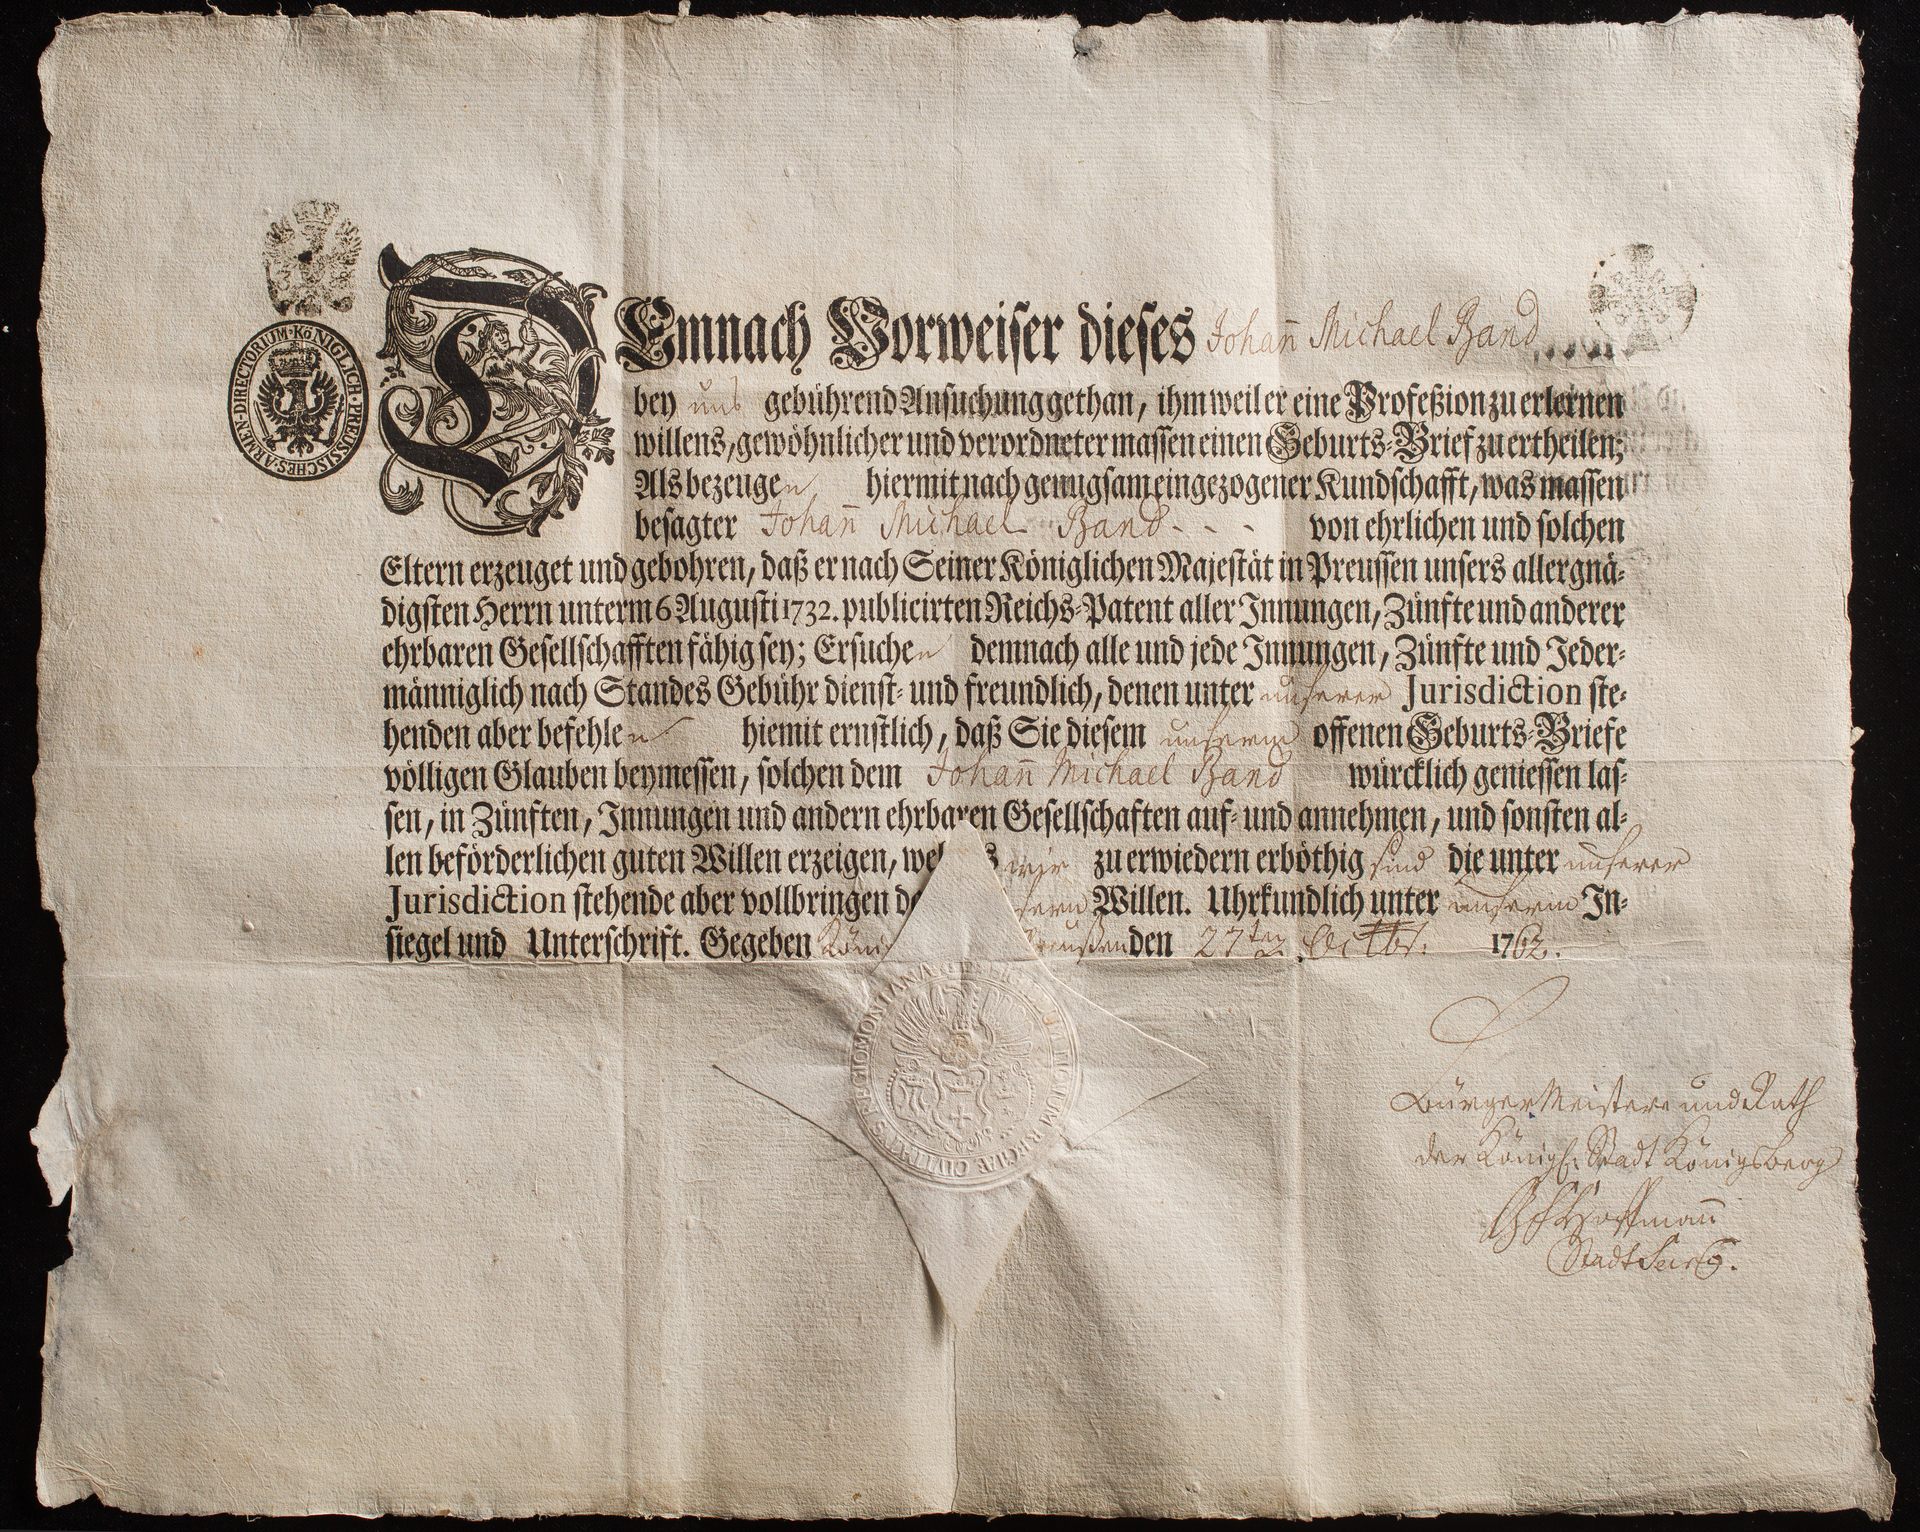 KÖNIGLICH · PREUSSISCHES · ARMEN · DIRECTORIUM ·
DEmnach Vorweiser dieses Johañ Michael Band
bey uns gebührend Ansuchung gethan, ihm weil er eine Profeßion zu erlernen
willens, gewöhnlicher und verordneter massen einen Geburts-Brief zu ertheilen;
Als bezeugen hiermit nach genugsam eingezogener Kundschafft, was massen
besagter Johañ Michael Band - - - von ehrlichen und solchen
Eltern erzeuget und gebohren, daß er nach Seiner Königlichen Majestät in Preussen unsers allergnä-
digsten Herrn unterm 6 Augusti 1732. publicirten Reichs-Patent aller Innungen, Zünfte und anderer
ehrbaren Gesellschafften fähig sey; Ersuchen demnach alle und jede Innungen, Zünfte und Jeder-
männiglich nach Standes Gebühr dienst- und freundlich, denen unter unserer Jurisdiction ste-
henden aber befehlen hiemit ernstlich, daß Sie diesem unserm offenen Geburts-Briefe
völligen Glauben beymessen, solchen dem Johañ Michael Band würcklich geniessen las-
sen, in Zünften, Innungen und andern ehrbaren Gesellschaften auf- und annehmen, und sonsten al-
len beförderlichen guten Willen erzeigen, wir zu erwiedern erböthig sind die unter unserer
Jurisdiction stehende aber vollbringen Willen. Uhrkundlich unter unserm In-
siegel und Unterschrift. Gegeben den 27ten Octbr. 1762.
REGIOMONTANA
CIVITATUS
Bürger Meistere und Rath
der Königl. Stadt Königsberg
Hoffmañ
Stadt Secr.